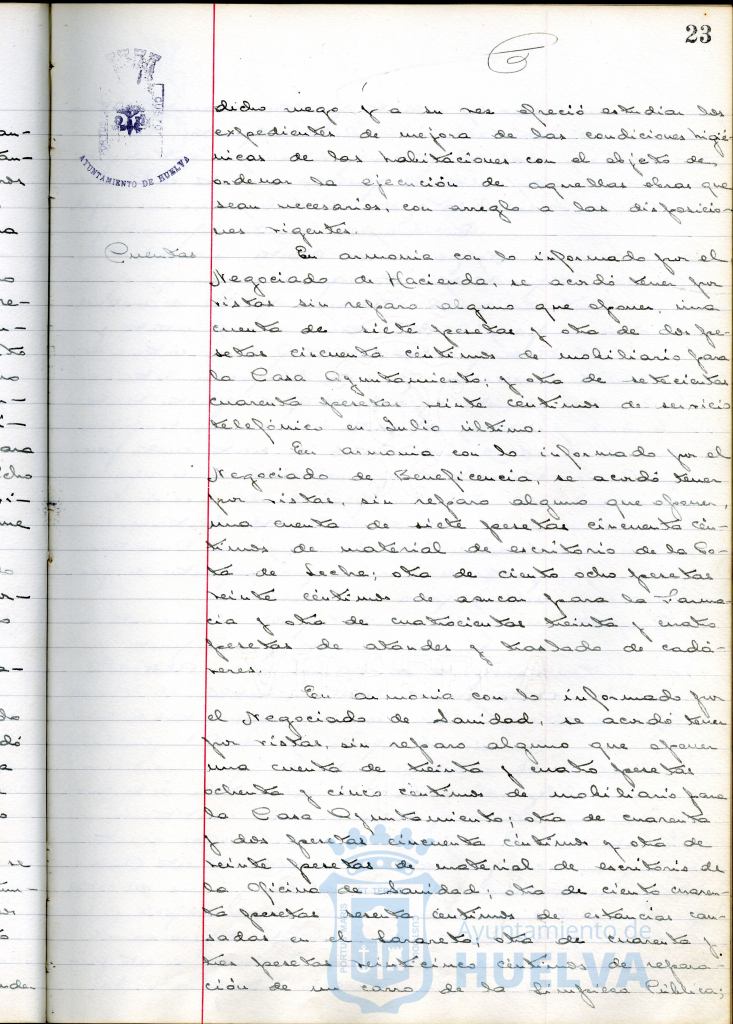 23
AYUNTAMIENTO DE HUELVA
dicho ruego y a su vez ofreció estudiar los
expedientes de mejora de las condiciones higié-
nicas de las habitaciones con el objeto de
ordenar la ejecución de aquellas obras que
sean necesarios, con arreglo a las disposicio-
nes vigentes.
Cuentas
En armonia con lo informado por el
Negociado de Hacienda, se acordó tener por
vistas sin reparo alguno que oponer, una
cuenta de siete pesetas y otra de dos pe-
setas cincuenta céntimos de mobiliario para
la Casa Ayuntamiento; y otra de setecientas
cuarenta pesetas veinte céntimos de servicio
telefónico en Julio último.
En armonia con lo informado por el
Negociado de Beneficencia, se acordó tener
por vistas, sin reparo alguno que oponer,
una cuenta de siete pesetas cincuenta cén-
timos de material de escritorio de la Go-
ta de Leche; otra de ciento ocho pesetas
veinte céntimos de azucar para la Farma-
cia y otra de cuatrocientas treinta y cuatro
pesetas de ataudes y traslado de cadá-
veres.
En armonia con lo informado por
el Negociado de Sanidad, se acordó tener
por vistas, sin reparo alguno que oponer
una cuenta de treinta y cuatro pesetas
ochenta y cinco céntimos de mobiliario para
la Casa Ayuntamiento; otra de cuarenta
y dos pesetas cincuenta céntimos y otra de
veinte pesetas de material de escritorio de
la Oficina de Sanidad; otra de ciento cuaren-
ta pesetas sesenta céntimos de estancias cau-
sadas en el Lazareto; otra de cuarenta y
tres pesetas veinticinco céntimos de repara-
ción de un carro de la Limpieza Pública;
Ayuntamiento de
HUELVA